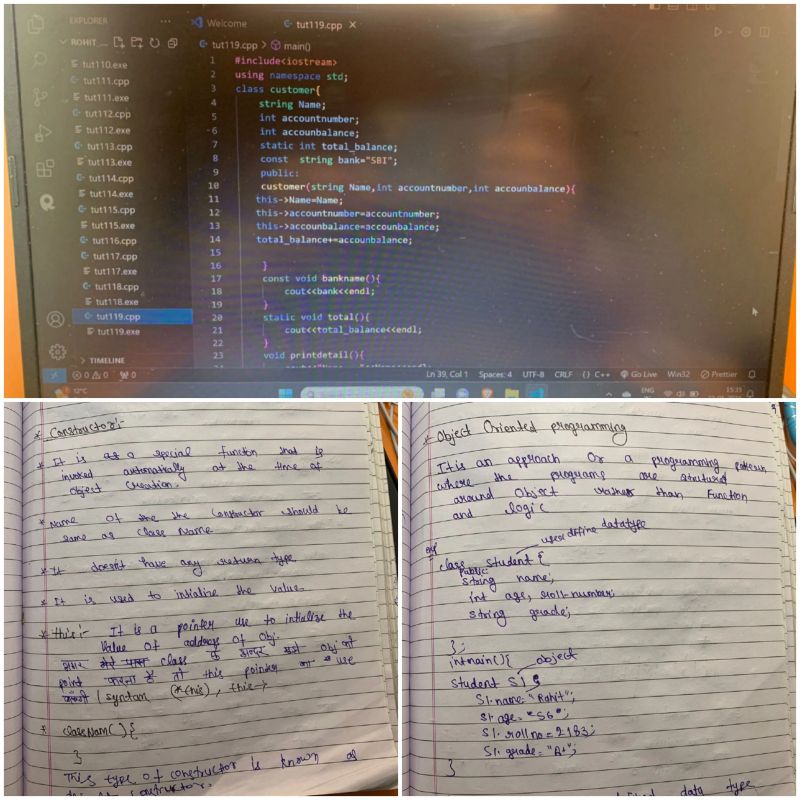 EXPLORER
ROHIT...
tut110.exe
tut111.cpp
tut111.exe
tut112.cpp
tut112.exe
tut113.cpp
tut113.exe
tut114.cpp
tut114.exe
tut115.cpp
tut115.exe
tut116.cpp
tut117.cpp
tut117.exe
tut118.cpp
tut118.exe
tut119.cpp
tut119.exe
TIMELINE
Welcome
tut119.cpp
tut119.cpp > main()
1 #include<iostream>
2 using namespace std;
3 class customer{
4 string Name;
5 int accountnumber;
6 int accounbalance;
7 static int total_balance;
8 const string bank="SBI";
9 public:
10 customer(string Name,int accountnumber,int accounbalance){
11 this->Name=Name;
12 this->accountnumber=accountnumber;
13 this->accounbalance=accounbalance;
14 total_balance+=accounbalance;
15
16 }
17 const void bankname(){
18 cout<<bank<<endl;
19 }
20 static void total(){
21 cout<<total_balance<<endl;
22 }
23 void printdetail(){
0 0 0
Ln 39, Col 1 Spaces: 4 UTF-8 CRLF {} C++ Go Live Win32 Prettier
12°C
ENG
15:35
* Constructor:-
* It is as a special functon that is
invoked automatically at the time of
object creation.
* Name of the the constructor should be
same as class Name
* It doesn't have any return type
* It is used to intialize the value
* this:- It is a pointer use to intialize the
value of address of obj.
class के अन्दर obj को
point करना है तो this pointer का use
(syntan (*this), this->
* classNam(){
}
This type of constructor is known as
* Object Oriented programming
It is an approach or a programming
where the programs are
around Object rather than Function
and logic
user difine datatype
class student {
public:
string name;
int age, roll number;
string grade;
};
int main(){ object
student S1;
S1.name="Rohit";
S1.age="56";
S1.roll no=2183;
S1.grade="A+";
}
data type